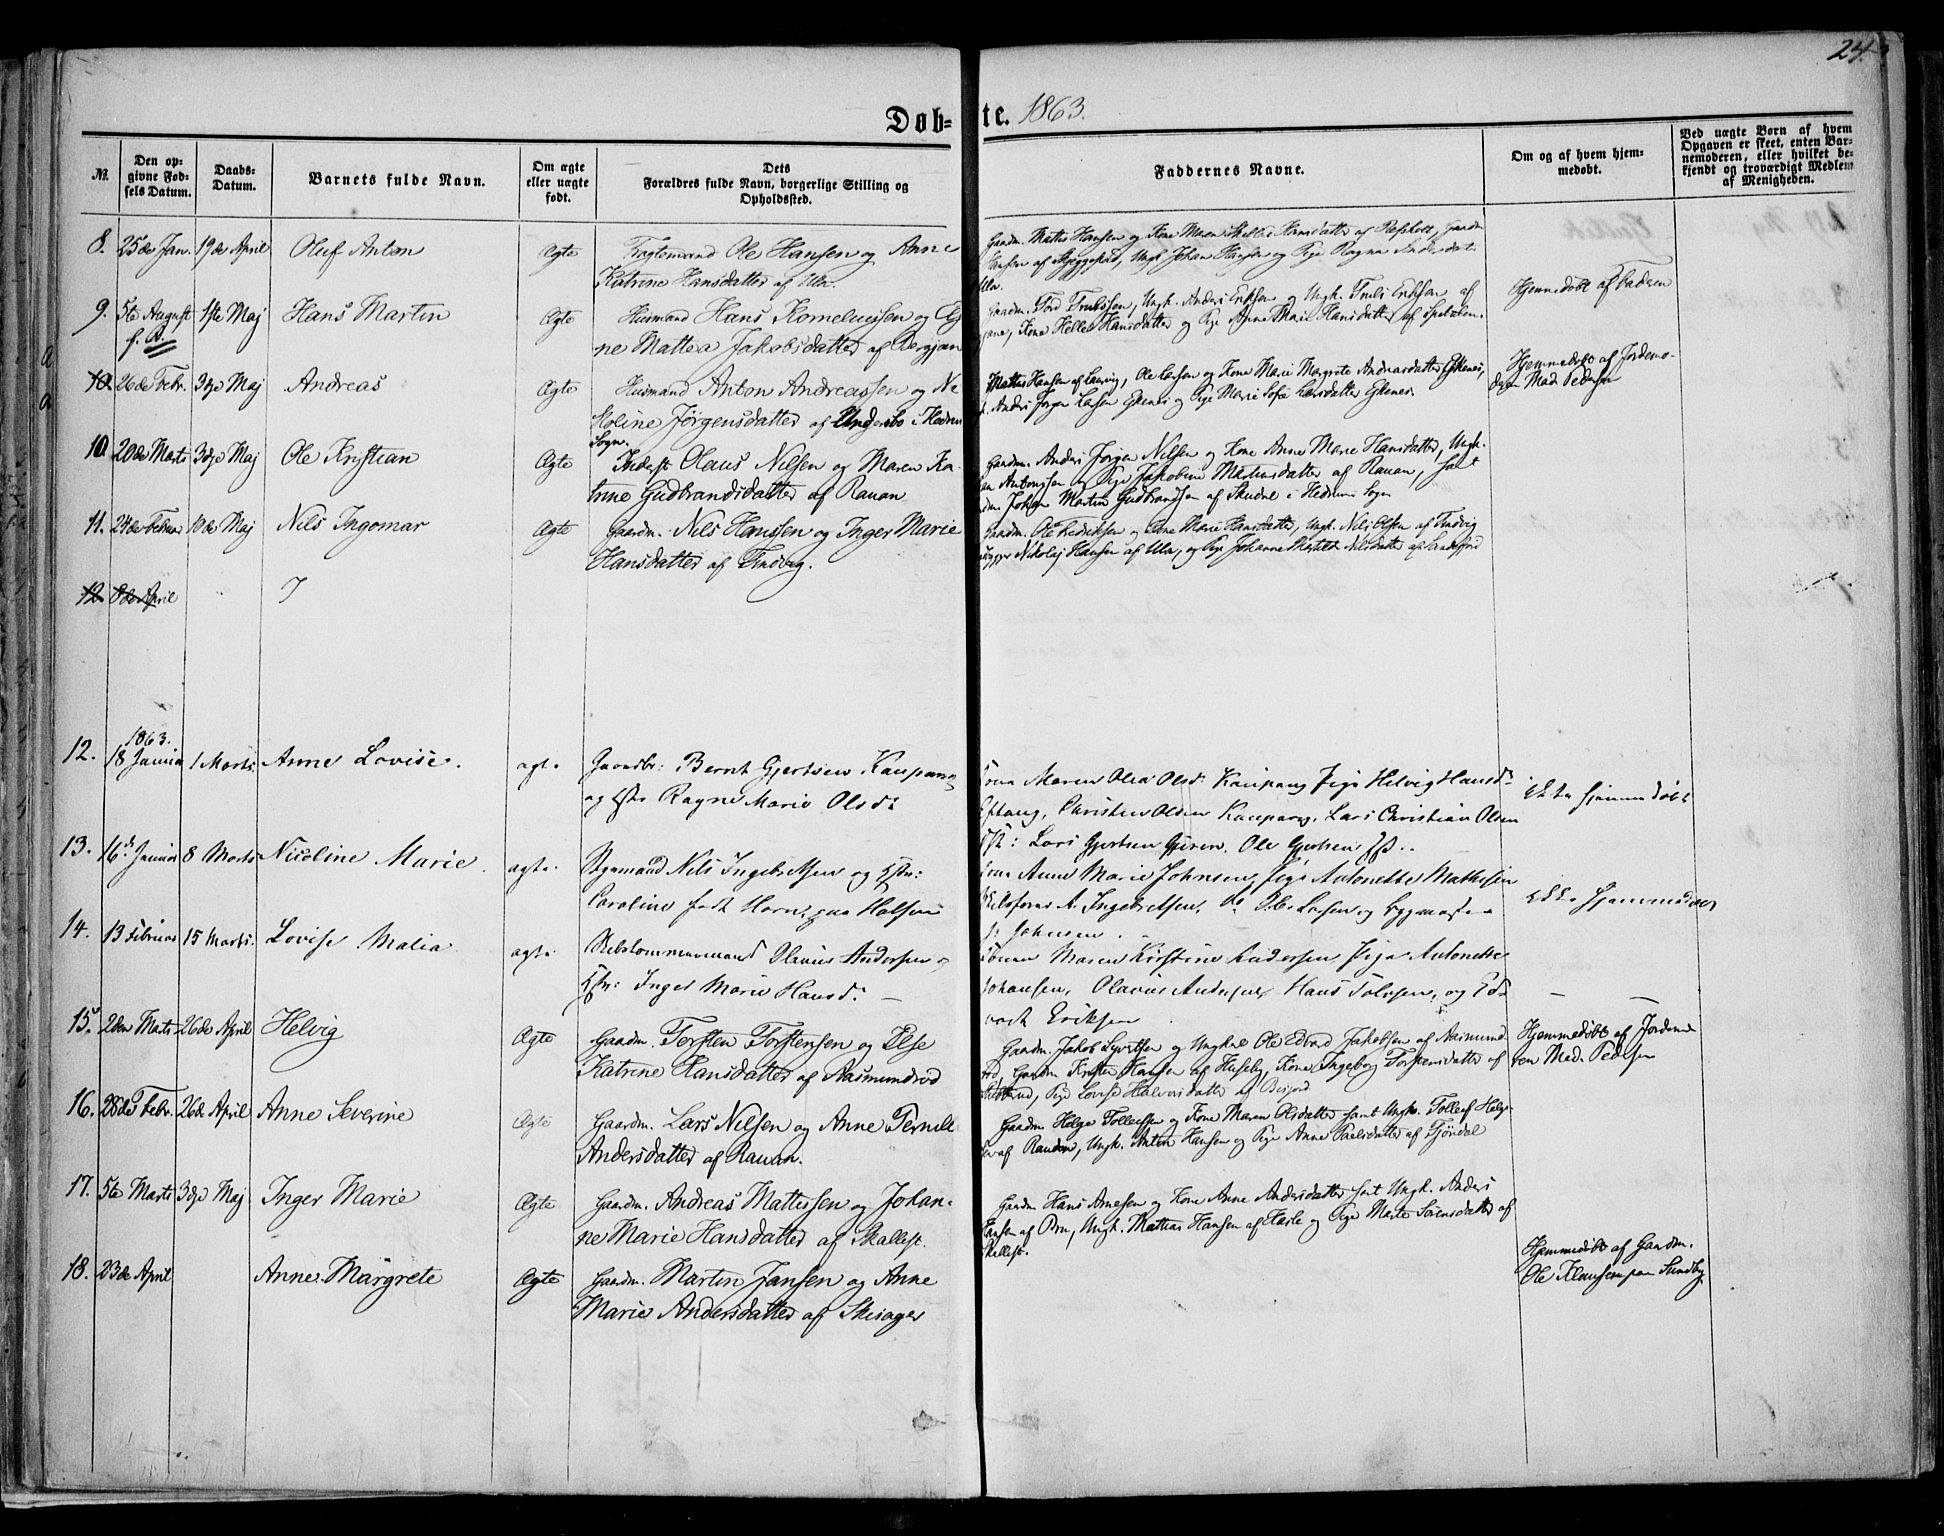 24.
Døb-te. 1863.
№.
Den op-
givne Fød-
sels Datum.
Daabs-
Datum.
Barnets fulde Navn.
Om ægte
eller uægte
født.
Dets
Forældres fulde Navn, borgerlige Stilling og
Opholdssted.
Faddernes Navne.
Om og af hvem hjem-
medøbt.
Ved uægte Børn af hvem
Opgaven er skeet, enten Bar-
nemoderen, eller hvilket be-
kjendt og troværdigt Medlem
af Menigheden.
8. 25de Jan. 19de April Oluf Anton Ægte Ole Hansen og Anne
Katrine Hansdatter af Ula.
Gaardm. Mattis Hansen og Kone Maren Hansdatter af Gaardm.
Hansen af Ungk. Johan Hansen og Pige Ragna Andersdatt
Ula.
9. 5te August 1ste Maj Hans Martin Ægte Husmand Hans Korneliussen og
f. A. ne Mattea Jakobsdatter af Bergan
Gaardm. Tord Trulssen, Ungk. Anders Eriksen og Ungk. Truls Eriksen af
Kone Helle Hansdatter og Pige Anne Marie Hansdatter af
Hjemmedøbt af Faderen
10. 26de Febr. 3die Maj Andreas Ægte Husmand Anton Andreassen og Ni
koline Jørgensdatter af Undersbo i Hedrum
Sogn.
Mattis Hansen af Laurvig, Ole Larsen og Kone Marie Margrete Andreasdatter Ekenes,
Anders Jørgen Larsen Ekenes og Pige Marie Sofie Larsdatter Ekenes.
Hjemmedøbt af Jordemo-
deren Mad. Pedersen
10. 20de Marts 3die Maj Ole Kristian Ægte Inderst Olaus Nilsen og Maren Ka-
trine Gudbrandsdatter af Rauan
Gaardm. Anders Jørgen Nilsen og Kone Anne Marie Hansdatter, Ungk.
Antonsen og Pige Jakobine Martinsdatter af Rauan, samt
Johan Martin Gudbrandsen af Skudne i Hedrum Sogn
11. 24de Februar 10de Maj Nils Ingomar Ægte Gaardm. Nils Hanssen og Inger Marie
Hansdatter af Tindvig.
Gaardm. Ole Fredriksen og Kone Marie Hansdatter, Ungk. Nils Olsen af Tindvig
Nikolaj Hansen af Ula, og Pige Johanne Nilsdatter af Sandefjord
12. 8de April J
1863.
12. 18 Januar 1 Marts. Anne Lovise. ægte Gaardbr: Bernt Gjertsen Kaupang
og Hstr Ragne Marie Olsd:
Kone Maren Olea Olsd: Kaupang Pige Helvig Hansd:
Eftang, Christen Olsen Kaupang, Lars Christian Olsen
Lars Gjertsen Gjeren, Ole Gjertsen
ikke hjemmedøbt
13. 16de Januar 8 Marts Nicoline Marie. ægte: Styrmand Nils Ingebretsen og Hstr:
Caroline født Horn, paa Halsen
Kone Anne Marie Johnsen, Pige Antonette Mathisen
Skibsfører A. Ingebretsen, do O. C. Larsen og Bygmester
J. Johnsen.
ikke hjemmedøbt
14. 13 Februar 15 Marts. Lovise Malia ægte Skibstømmermand Olavus Andersen og
Hstr: Inger Marie Hansd:
Konen Maren Kirstine Andersen, Pige Antonette
Johansen, Olavus Andersen, Hans Tolvsen, og Ed-
vart Eriksen
15. 2den Marts 26de April Helvig Ægte Gaardm. Torsten Torstensen og Else
Katrine Hansdatter af Aasmundrød
Gaardm. Jakob Syvertsen og Ungkarl Ole Edvard Jakobsen af Aasmund
rød, Gaardm Kristen Hansen af Huseby, Kone Ingeborg Torstensdatter af
Pige Lovise Halvorsdatter af
Hjemmedøbt af Jordemo
ren Mad. Pedersen
16. 28de Febr. 26de April Anne Severine Ægte Gaardm. Lars Nilsen og Anne Pernill
Andersdatter af Rauan.
Gaardm Helge Tollefsen og Kone Maren Olsdatter samt Ungk. Tollef Helge-
sen af Rauan, Ungk. Anton Hansen og Pige Anne Paulsdatter af Tjøndal
17. 5te Marts 3die Maj Inger Marie Ægte Gaardm. Andreas Mattissen og Johan-
ne Marie Hansdatter af Skallest.
Gaardm Hans Arnesen og Kone Anne Andersdatter samt Ungk. Anders
Hansen af Ørn, Ungk. Mathias Hansen af Hasle og Pige Marte Sørensdatter af
Skallest.
18. 23de April Anne Margrete Ægte Gaardm. Martin Jansen og Anne
Marie Andersdatter af Skisager
Hjemmedøbt af Gaardm.
Ole Klausen paa Sundby.